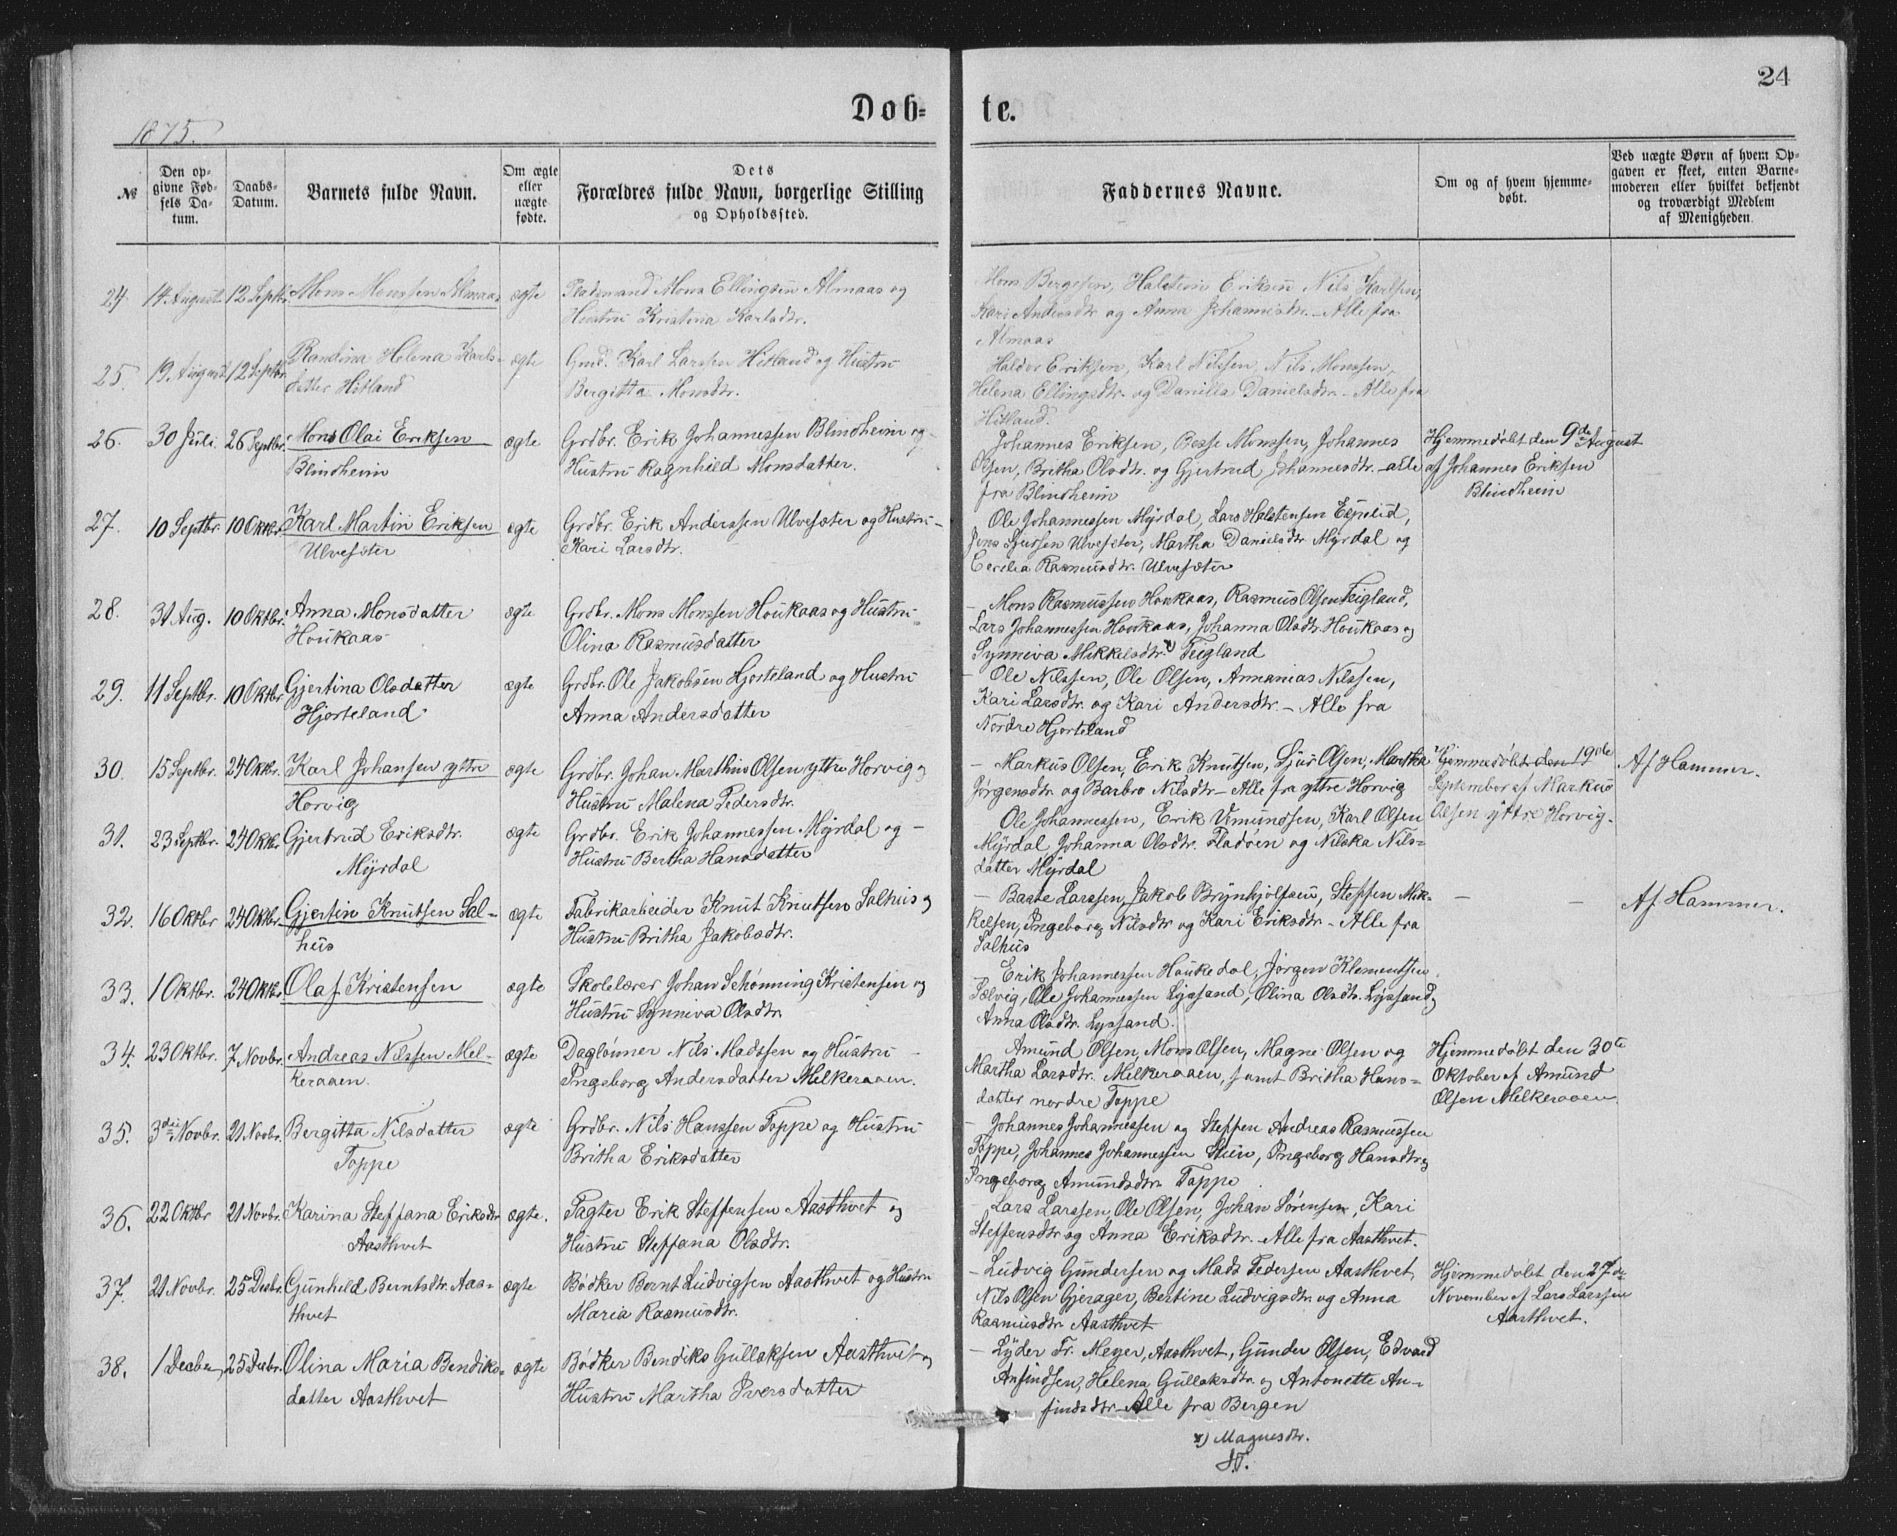 24
Dob-
te.
1875.
№
Den op-
givne Fød-
sels Da-
tum.
Daabs-
Datum.
Barnets fulde Navn.
Om ægte
eller
uægte
fødte.
Dets
Forældres fulde Navn, borgerlige Stilling
og Opholdssted.
Faddernes Navne.
Om og af hvem hjemme-
døbt.
Ved uægte Børn af hvem Op-
gaven er skeet, enten Barne-
moderen eller hvilket bekjendt
og troværdigt Medlem
af Menigheden.
24 14 August 12 Septbr. Mons Monssen Almaas ægte Pladsmand Mons Ellingsen Almaas og
Hustru Kristina Karlsdtr.
Mons Bergesen, Halstein Eriksen Nils Karlsen,
Kari Andersdtr og Anna Johannesdtr. - Alle fra
Almaas
25. 19 August 12 Septbr. Randina Helena Karls- ægte Gmd. Karl Larssen Hitland og Hustru
datter Hitland
Bergitta Monsdtr.
Haldor Eriksen, Karl Nilssen, Nils Monssen,
Helena Ellingsdtr. og Danilla Danielsdtr. - Alle fra
Hitland.
26. 30 Juli 26 Septbr. Mons Olai Eriksen ægte Grdbr. Erik Johannessen Blindheim og
Blindheim
Hustru Ragnhild Monsdatter.
Johannes Eriksen, Besse Monssen, Johannes
Olsen, Britha Olsdtr. og Gjertrud Johannesdtr. - alle
fra Blindheim
Hjemmedøbt den 9de August
af Johannes Eriksen
Blindheim
27. 10 Septbr. 10 Oktbr. Karl Martin Eriksen ægte Grdbr. Erik Anderssen Ulvesæter og Hustru
Ulvesæter
Kari Larsdtr.
Ole Johannessen Myrdal, Lars Halstensen Espelid,
Jens Sjursen Ulvesæter, Martha Danielsdtr Myrdal og
Cecilia Rasmusdtr. Ulvesæter
28. 31 Aug. 10 Oktbr. Anna Monsdatter ægte Grdbr. Mons Monssen Houkaas og Hustru
Houkaas
Olina Rasmusdatter
- Mons Rasmussen Houkaas, Rasmus Olsen Teigland,
Lars Johannessen Houkaas, Johanna Olsdtr. Houkaas og
Synneva Mikkelsdtr. x) Teigland
29. 11 Septbr. 10 Oktbr. Gjertina Olsdatter ægte Grdbr. Ole Jakobsen Hjorteland og Hustru
Hjorteland
Anna Andersdatter
- Ole Nilssen, Ole Olsen, Annanias Nilssen,
Kari Larsdtr. og Kari Andersdtr. - Alle fra
Nordre Hjorteland
30. 15 Septbr. 24 Oktbr. Karl Johansen yttre ægte Grdbr. Johan Marthius Olsen yttre Horvig og
Horvig
Hustru Malena Pedersdtr.
- Markus Olsen, Erik Knutsen, Sjur Olsen, Martha
Jørgensdtr og Barbro Nilsdtr - Alle fra yttre Horvig
Hjemmedøbt den 19de
September af Markus
Olsen yttre Horvig.
Af Hammer.
31. 23 Septbr. 24 Oktbr. Gjertrud Eriksdtr. ægte Grdbr. Erik Johannessen Myrdal og -
Myrdal
Hustru Bertha Hansdatter
Ole Johannessen, Erik Vemundsen, Karl Olsen
Myrdal Johanna Olsdtr. Fladøen og Nilska Nils-
datter Myrdal
32. 16 Oktbr 24 Oktbr. Gjertin Knutsen Sal- ægte Fabrikarbeider Knut Knutsen Salhus og
hus
Hustru Britha Jakobsdtr.
- Baste Larssen, Jakob Brynhjolfsen, Steffen Mik-
kelsen, Ingeborg Nilsdtr og Kari Eriksdtr - Alle fra
Salhus
- -
Af Hammer.
33. 1 Oktbr. 24 Oktbr. Olaf Kristensen ægte Skolelærer Johan Schønning Kristensen og
Hustru Synniva Olsdtr.
- Erik Johannessen Haukedal, Jørgen Klementsen
Ole Johannessen Lyssand, Olina Olsdtr. Lyssand og
Anna Olsdtr. Lyssand.
34. 23 Oktbr. 7 Novbr. Andreas Nilssen Mel- ægte Dagløner Nils Madssen og Hustru
keraaen.
Ingeborg Andersdatter Melkeraaen.
Amund Olsen, Mons Olsen, Magne Olsen og
Martha Larsdtr. Melkeraaen, samt Britha Hans-
datter nordre Toppe
Hjemmedøbt den 30te
Oktober af Amund
Olsen Melkeraaen.
35. 3die Novbr. 21 Novbr. Bergitta Nilsdatter ægte Grdbr. Nils Hanssen Toppe og Hustru
Toppe
Britha Eriksdatter
- Johannes Johannessen og Steffen Andreas Rasmussen
Toppe, Johannes Johannessen Stein, Ingeborg Hansdtr og
Ingeborg Amundsdtr Toppe.
36. 22 Oktbr 21 Novbr. Karina Steffana Eriksdtr ægte. Pagter Erik Steffensen Aasthvet og
Aasthvet
Hustru Steffana Olsdtr.
- Lars Larssen, Ole Olsen, Johan Sørensen, Kari
Steffensdtr og Anna Eriksdtr. Alle fra Aasthvet.
37. 21 Novbr. 25 Decbr. Gunhild Berntsdtr. Aas- ægte Bødker Bernt Ludvigsen Aasthvet og Hustru
thvet
Maria Rasmusdtr.
- Ludvig Gundersen og Mads Pedersen Aasthvet
Nils Olsen Gjerager, Bertine Ludvigsdtr. og Anna
Rasmusdtr. Aasthvet
Hjemmedøbt den 27de
November af Lars Larssen
Aasthvet.
38. 1 Decber 25 Decbr. Olina Maria Bendiks- ægte Bødker Bendiks Gullaksen Aasthvet og
datter Aasthvet
Hustru Martha Iversdatter
- Lyder Fr. Meyer, Aasthvet, Gunder Olsen, Edvard
Anfindsen, Helena Gullaksdtr og Antonette An-
findsdtr - Alle fra Bergen
x) Magnesdtr.